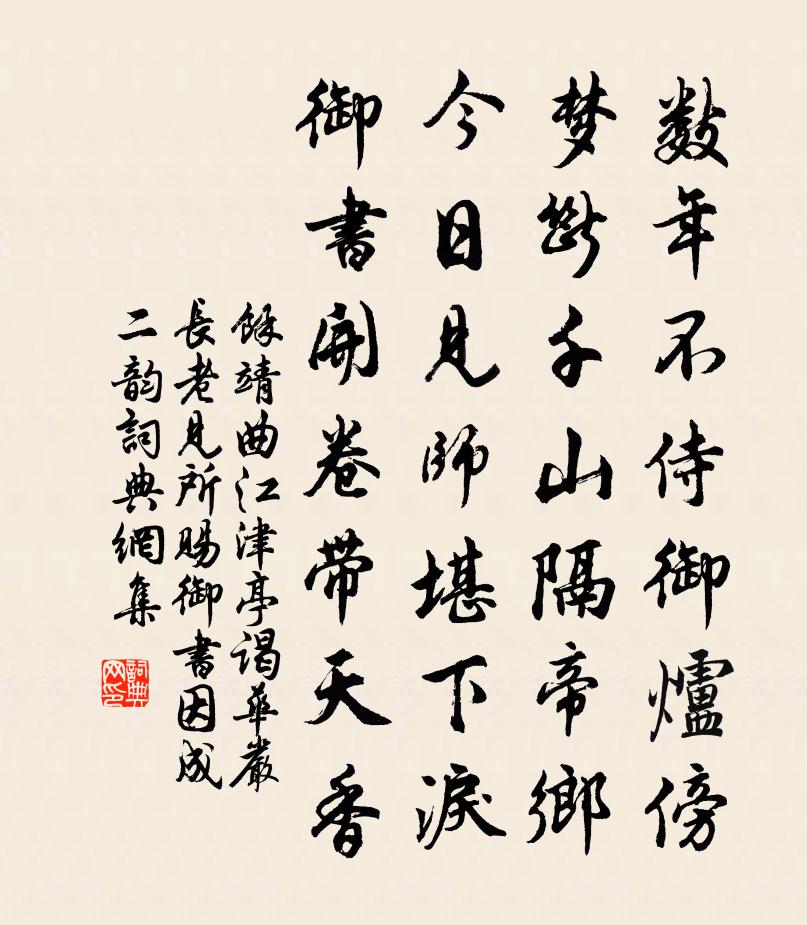 数年不侍御爐傍
梦斷千山隔帝鄉
今日見師堪下淚
御書開卷帶天香
餘靖曲江津亭謁華嚴
長老見所賜御書因成
二韵詞典網集
詞典
网印